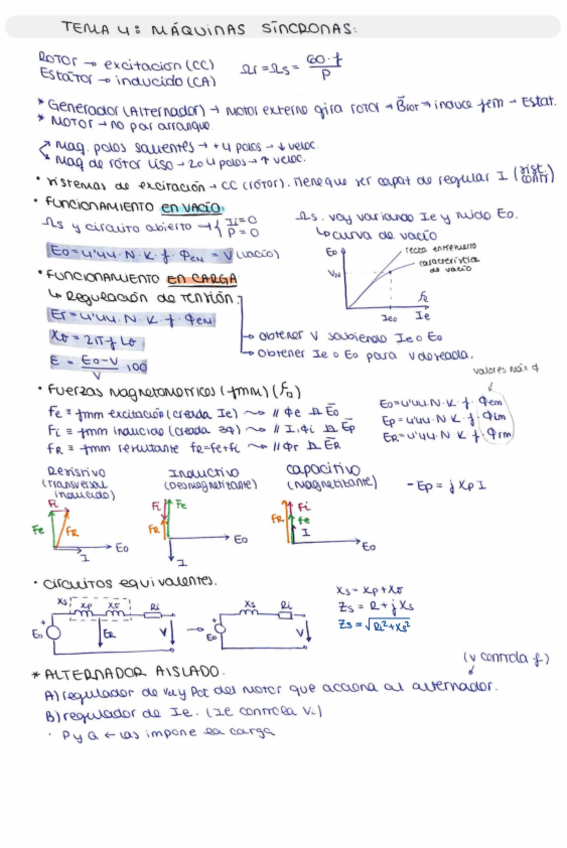 TEMA 4: MÁQUINAS SÍNCRONAS:
ROTOR → excitación (CC)
ESTATOR → inducido (CA)
Ωr = Ωs = 60·f / P
* Generador (Alternador) → Motor externo gira rotor → B̄rot → induce fem → Estat.
* MOTOR → no par arranque.
Maq. polos salientes → +4 polos → ↓ veloc.
Maq de rotor liso → 2 o 4 polos → ↑ veloc.
• Sistemas de excitación → CC (rotor). Tiene que ser capat de regular I
• FUNCIONAMIENTO EN VACÍO.
Ωs y circuito abierto → { Ii=0
P=0
E0=4'44·N·K·f·Φem = V (vacío)
Ωs. voy variando Ie y mido E0.
↳ curva de vacío
E0
recta entrehierro
característica de vacío
VN
fe
Ie0
Ie
• FUNCIONAMIENTO EN CARGA
↳ Regulación de tensión.
Er=4'44·N·K·f·Φem
Xσ = 2πf Lσ
ε = E0-V / V · 100
→ obtener V sabiendo Ie o E0
→ obtener Ie o E0 para V deseada.
valores máx Φ
• Fuerzas magnetomotrices (fmm) (f)
Fe ≡ fmm excitación (creada Ie) ~> // Φe ⊥ Ē0
Fi ≡ fmm inducido (creada 3φ) ~> // I, Φi ⊥ Ēp
FR ≡ fmm resultante fR=fe+fi ~> // Φr ⊥ ĒR
E0=4'44·N·K·f·Φem
Ep=4'44·N·K·f·Φim
ER=4'44·N·K·f·Φrm
Resistivo
(Transversal inducido)
Inductivo
(Desmagnetizante)
Capacitivo
(Magnetizante)
- Ep = j Xp I
Fi
Fe
FR
I
E0
Fi
Fe
FR
E0
I
Fi
FR
fe
I
E0
• Circuitos equivalentes.
Xs
Xp
Xσ
Ri
E0
ER
V
→
Xs
Ri
E0
V
Xs = Xp + Xσ
Zs = R + j Xs
Zs = √Ri²+Xs²
* ALTERNADOR AISLADO.
(V controla f)
A) regulador de Vel y Pot del Motor que acciona al alternador.
B) regulador de Ie. (Ie controla V.)
• P y Q ← las impone la carga